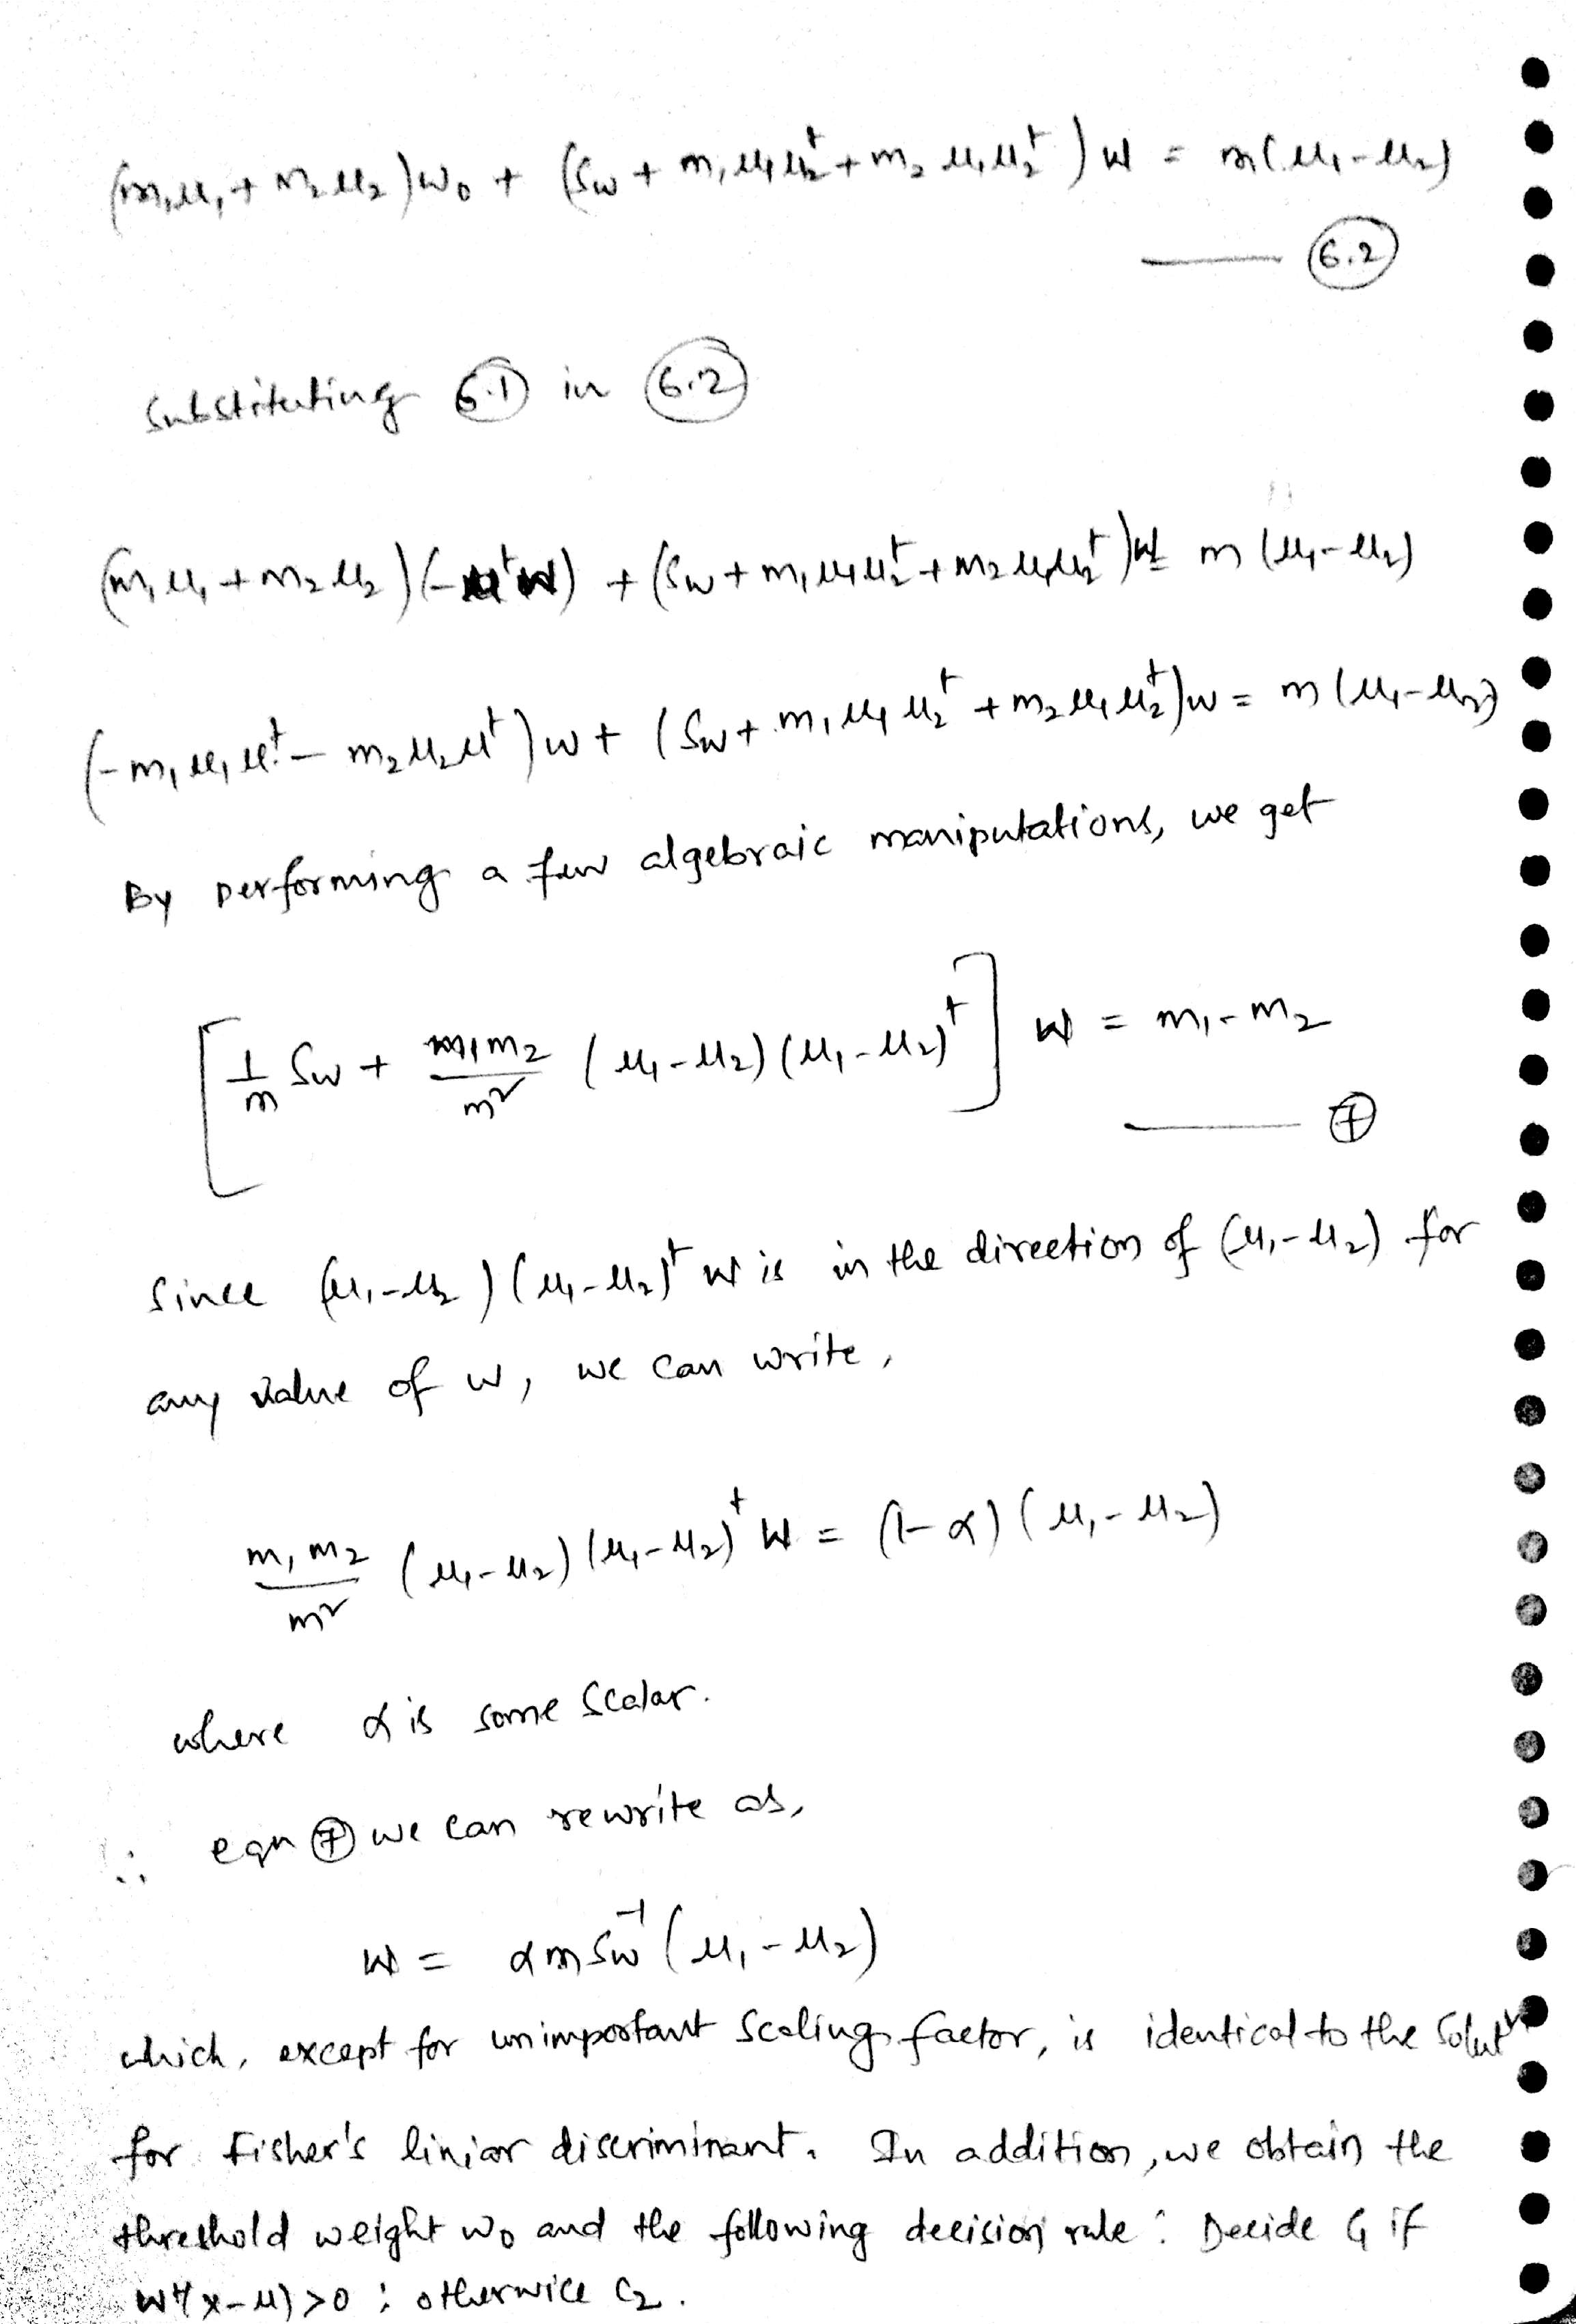 (m₁μ₁ + m₂μ₂)w₀ + (Sw + m₁μ₁μ₂ᵗ + m₂μ₁μ₂ᵗ)w = m(μ₁-μ₂)
—— (6.2)
Substituting (6.1) in (6.2)
(m₁μ₁ + m₂μ₂)(-μᵗw) + (Sw + m₁μ₁μ₂ᵗ + m₂μ₁μ₂ᵗ)w = m(μ₁-μ₂)
(-m₁μ₁μᵗ - m₂μ₂μᵗ)w + (Sw + m₁μ₁μ₂ᵗ + m₂μ₁μ₂ᵗ)w = m(μ₁-μ₂)
By performing a few algebraic manipulations, we get
[1/m Sw + m₁m₂/m² (μ₁-μ₂)(μ₁-μ₂)ᵗ] w = m₁-m₂
—— (7)
Since (μ₁-μ₂)(μ₁-μ₂)ᵗ w is in the direction of (μ₁-μ₂) for
any value of w, we can write,
m₁m₂/m² (μ₁-μ₂)(μ₁-μ₂)ᵗ w = (1-α)(μ₁-μ₂)
where α is some scalar.
∴ eqn (7) we can rewrite as,
w = αm Sw⁻¹(μ₁-μ₂)
which, except for unimportant scaling factor, is identical to the
for Fisher's liniar discriminant. In addition, we obtain the
threshold weight w₀ and the following decision rule : Decide C₁ if
wᵗ(x-μ)>0 ; otherwice C₂.